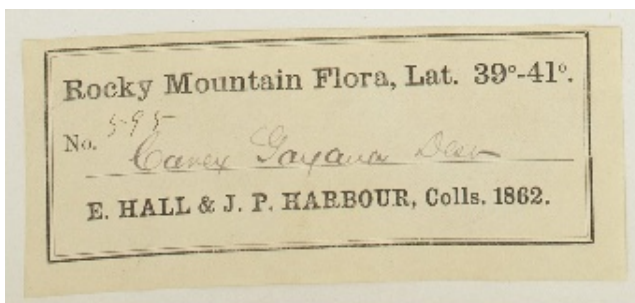 Rocky Mountain Flora, Lat. 39°-41°.
No. 595
Carex Gayana Desv
E. HALL & J. P. HARBOUR, Colls. 1862.